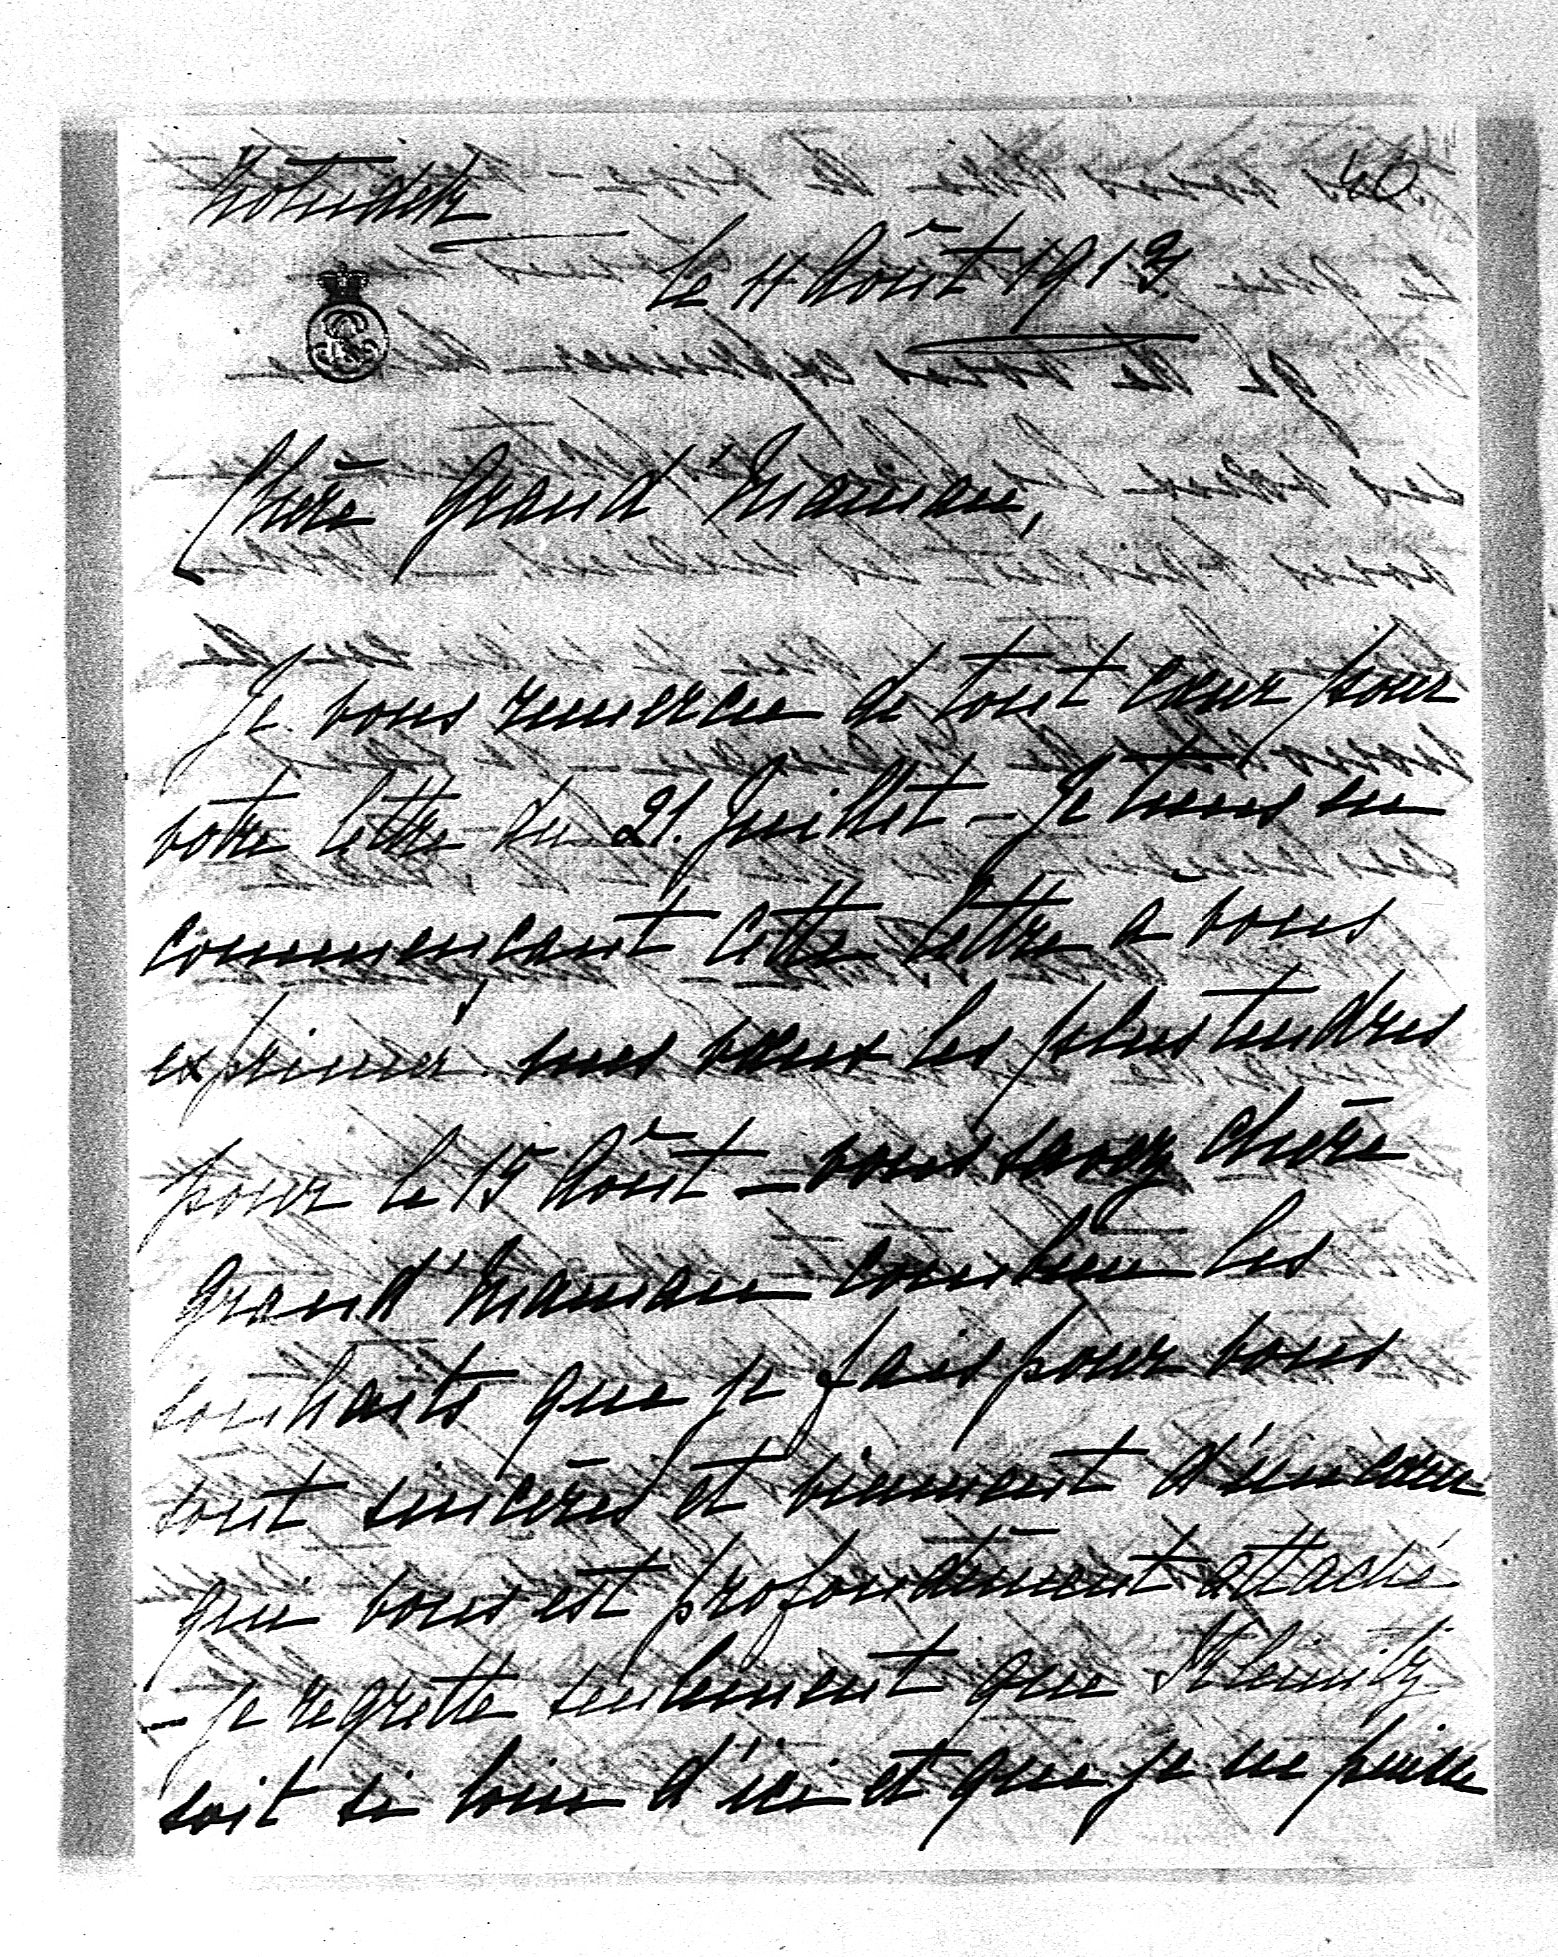 40
Kotuidetz
le 11 Août 1912.
Chère Grand'Maman,
Je vous remercie de tout cœur pour
votre lettre du 21. Juillet – Je tiens en
commençant cette lettre à vous
exprimer mes vœux les plus tendres
pour le 15 Août – vous savez chère
Grand'Maman combien les
souhaits que je fais pour vous
sont sincères et viennent d'un cœur
qui vous est profondément attaché
– je regrette seulement que
soit si loin d'ici et que je ne puisse